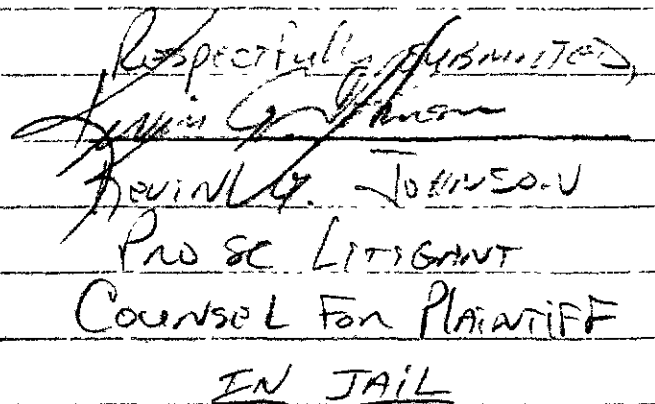 Respectfully submitted,
Kevin G. Johnson
Kevin G. Johnson
Pro se Litigant
Counsel for Plaintiff
IN JAIL